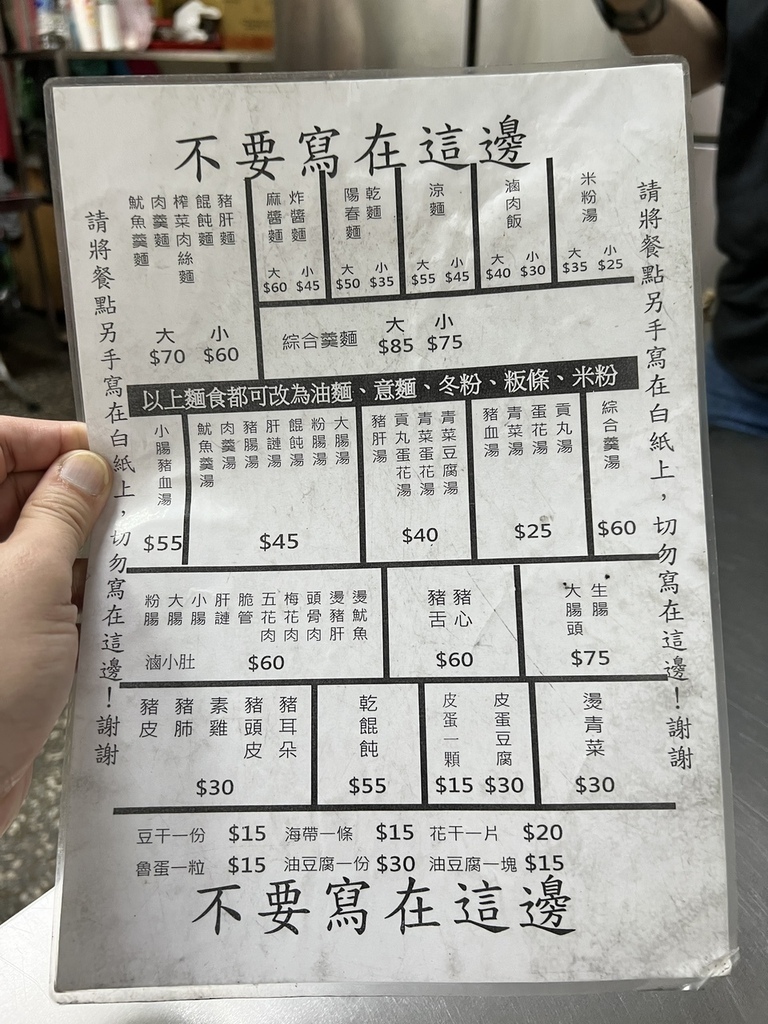 不要寫在這邊
請將餐點另手寫在白紙上，切勿寫在這邊！謝謝
豬肝麵
餛飩麵
榨菜肉絲麵
肉羹麵
魷魚羹麵
大 小
$70 $60
炸醬麵
麻醬麵
大 小
$60 $45
乾麵
陽春麵
大 小
$50 $35
涼麵
大 小
$55 $45
滷肉飯
大 小
$40 $30
米粉湯
大 小
$35 $25
綜合羹麵
大 小
$85 $75
以上麵食都可改為油麵、意麵、冬粉、粄條、米粉
小腸豬血湯
$55
大腸湯
粉腸湯
餛飩湯
肝連湯
豬腸湯
肉羹湯
魷魚羹湯
$45
青菜豆腐湯
青菜蛋花湯
貢丸蛋花湯
豬肝湯
$40
貢丸湯
蛋花湯
青菜湯
豬血湯
$25
綜合羹湯
$60
燙魷魚
燙豬肝
頭骨肉
梅花肉
五花肉
脆管
肝連
小腸
大腸
粉腸
滷小肚
$60
豬心
豬舌
$60
生腸
大腸頭
$75
豬耳朵
豬頭皮
素雞
豬肺
豬皮
$30
乾餛飩
$55
皮蛋一顆
$15
皮蛋豆腐
$30
燙青菜
$30
豆干一份 $15 海帶一條 $15 花干一片 $20
魯蛋一粒 $15 油豆腐一份 $30 油豆腐一塊 $15
不要寫在這邊
請將餐點另手寫在白紙上，切勿寫在這邊！謝謝